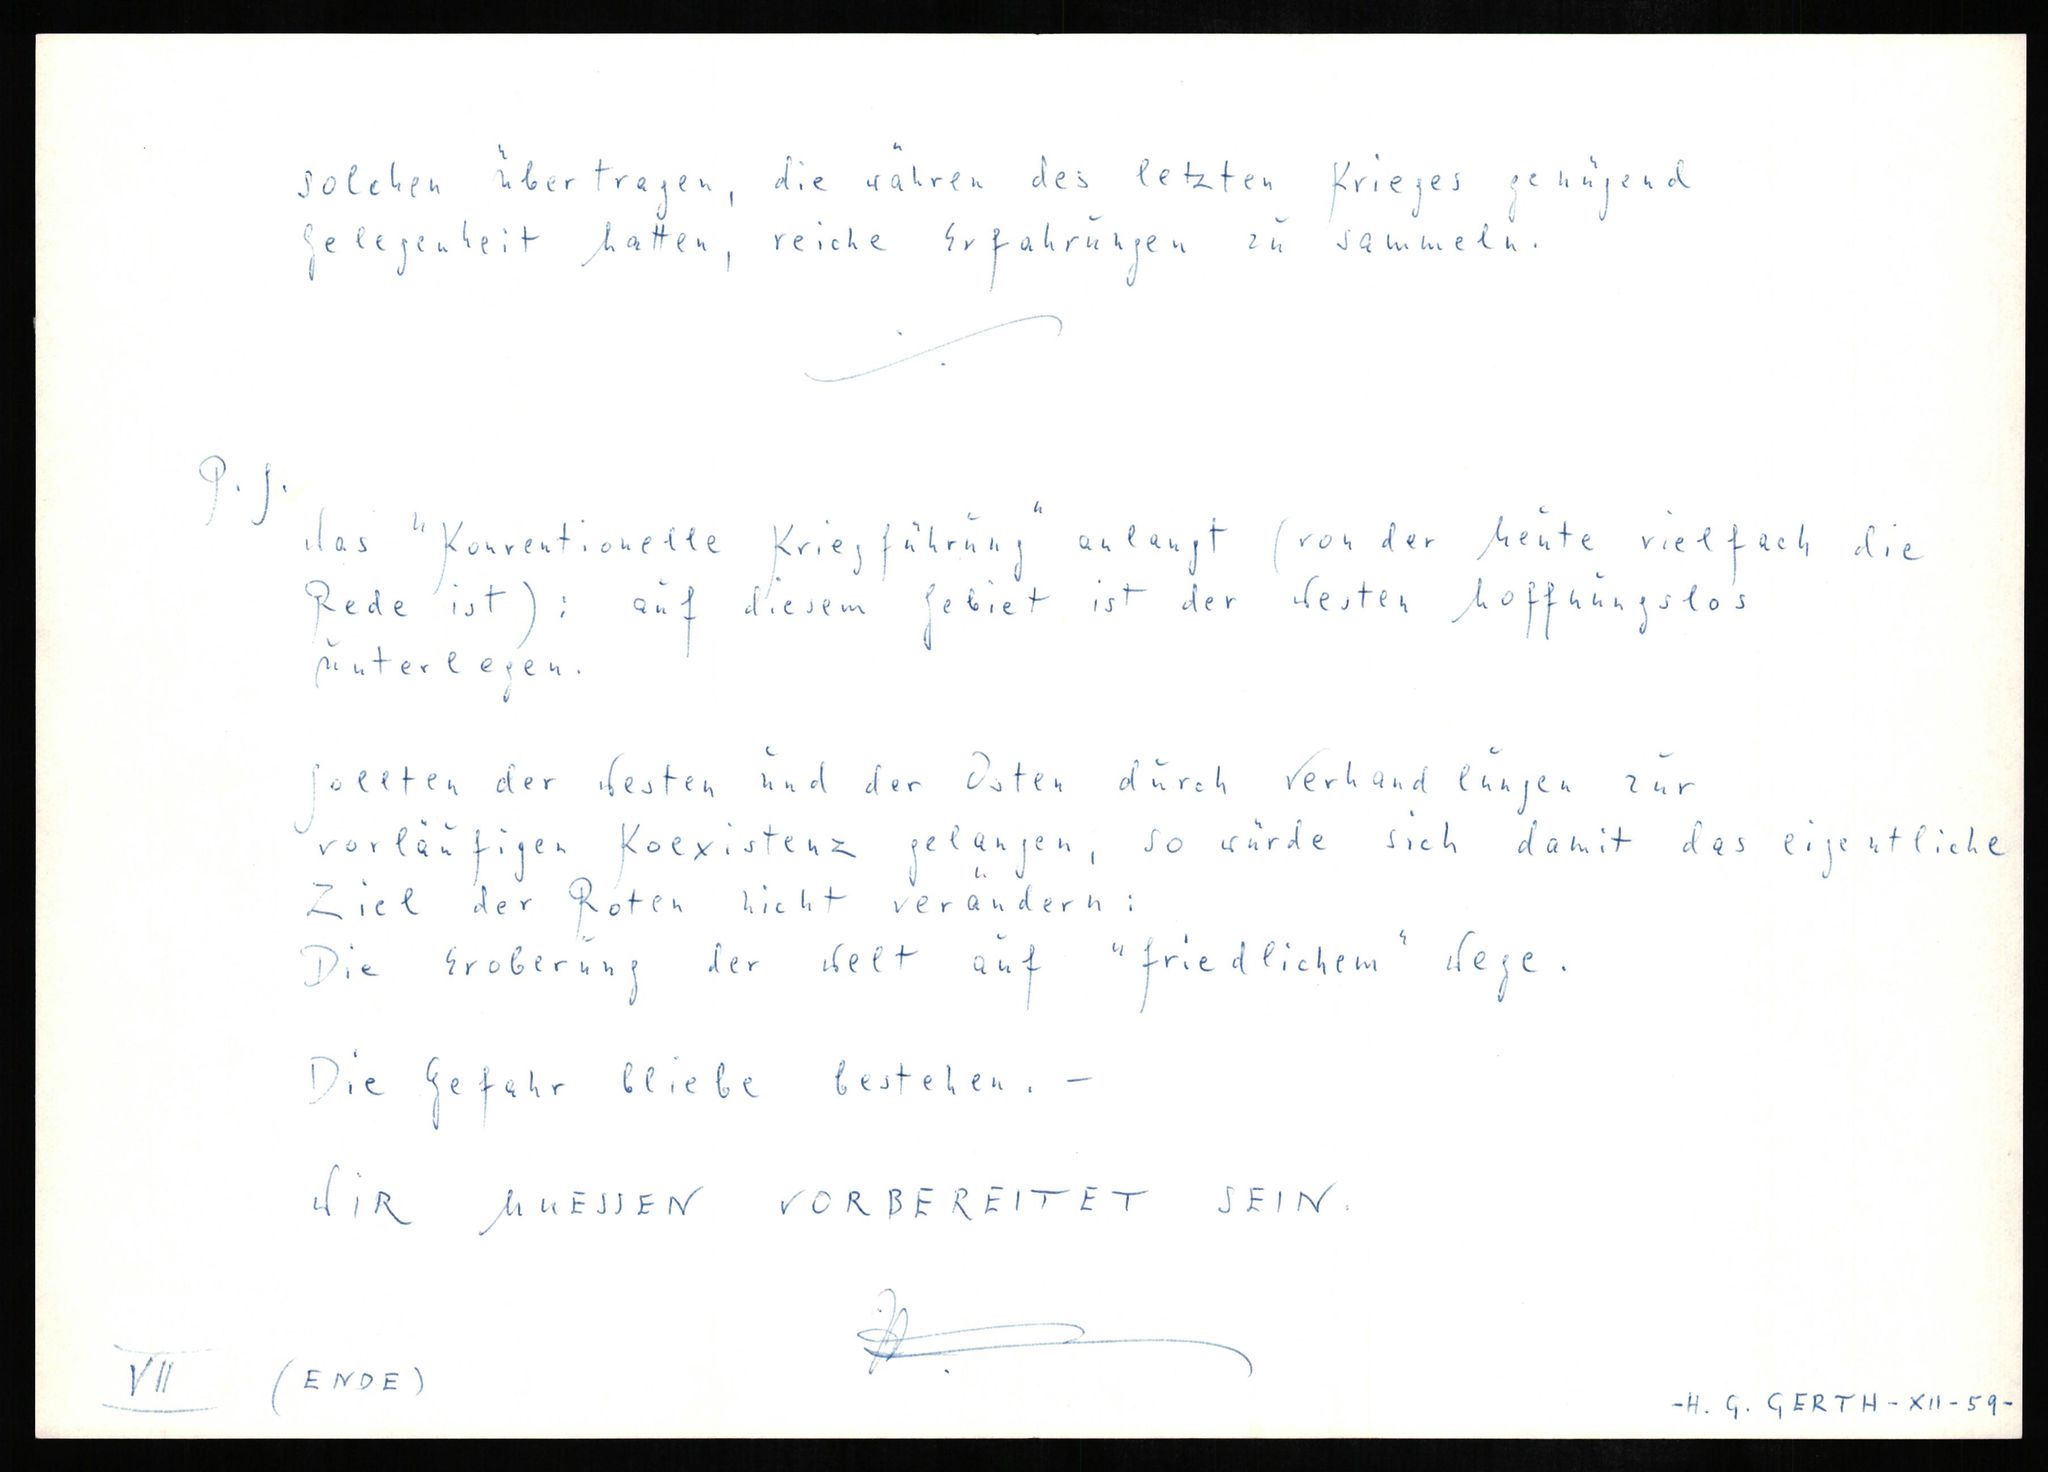 solchen übertragen, die währen des letzten Krieges genügend
Gelegenheit hatten, reiche Erfahrungen zu sammeln.
P. S.
Was "Konventionelle Kriegführung" anlangt (von der heute vielfach die
Rede ist): auf diesem Gebiet ist der Westen hoffnungslos
unterlegen.
Sollten der Westen und der Osten durch Verhandlungen zur
vorläufigen Koexistenz gelangen, so würde sich damit das eigentliche
Ziel der Roten nicht verändern:
Die Eroberung der Welt auf "friedlichem" Wege.
Die Gefahr bliebe bestehen. —
WIR MUESSEN VORBEREITET SEIN.
VII (ENDE)
-H. G. GERTH-XII-59-